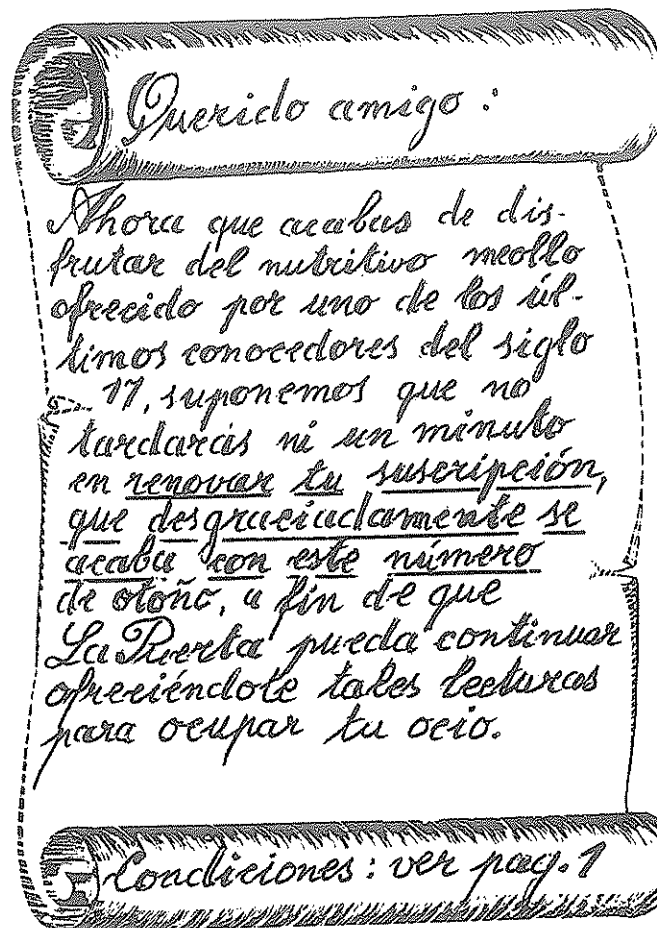 Querido amigo :
Ahora que acabas de dis-
frutar del nutritivo meollo
ofrecido por uno de los úl-
timos conocedores del siglo
17, suponemos que no
tardarás ni un minuto
en renovar tu suscripción,
que desgraciadamente se
acaba con este número
de otoño, a fin de que
La Puerta pueda continuar
ofreciéndote tales lecturas
para ocupar tu ocio.
Condiciones : ver pag. 1